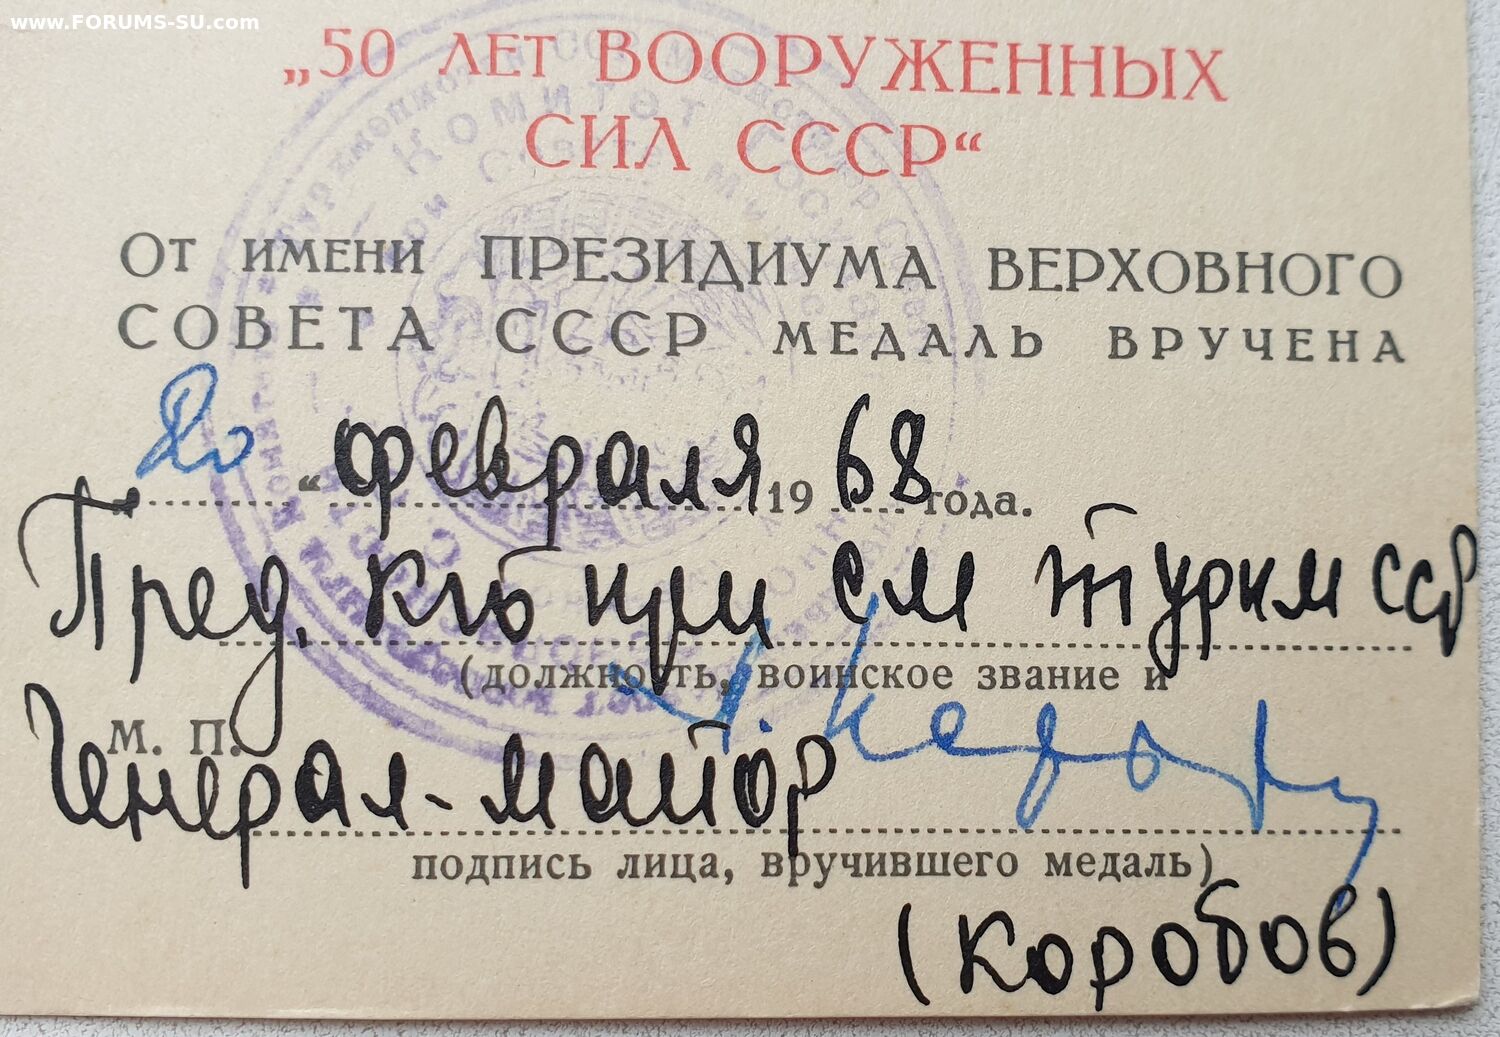 www.FORUMS-SU.com
„50 ЛЕТ ВООРУЖЕННЫХ
СИЛ СССР“
ОТ ИМЕНИ ПРЕЗИДИУМА ВЕРХОВНОГО
СОВЕТА СССР МЕДАЛЬ ВРУЧЕНА
„20“ февраля 1968 года.
Пред. КГБ при СМ Туркм ССР
(должность, воинское звание и
М. П.
Генерал-майор
подпись лица, вручившего медаль)
(Коробов)